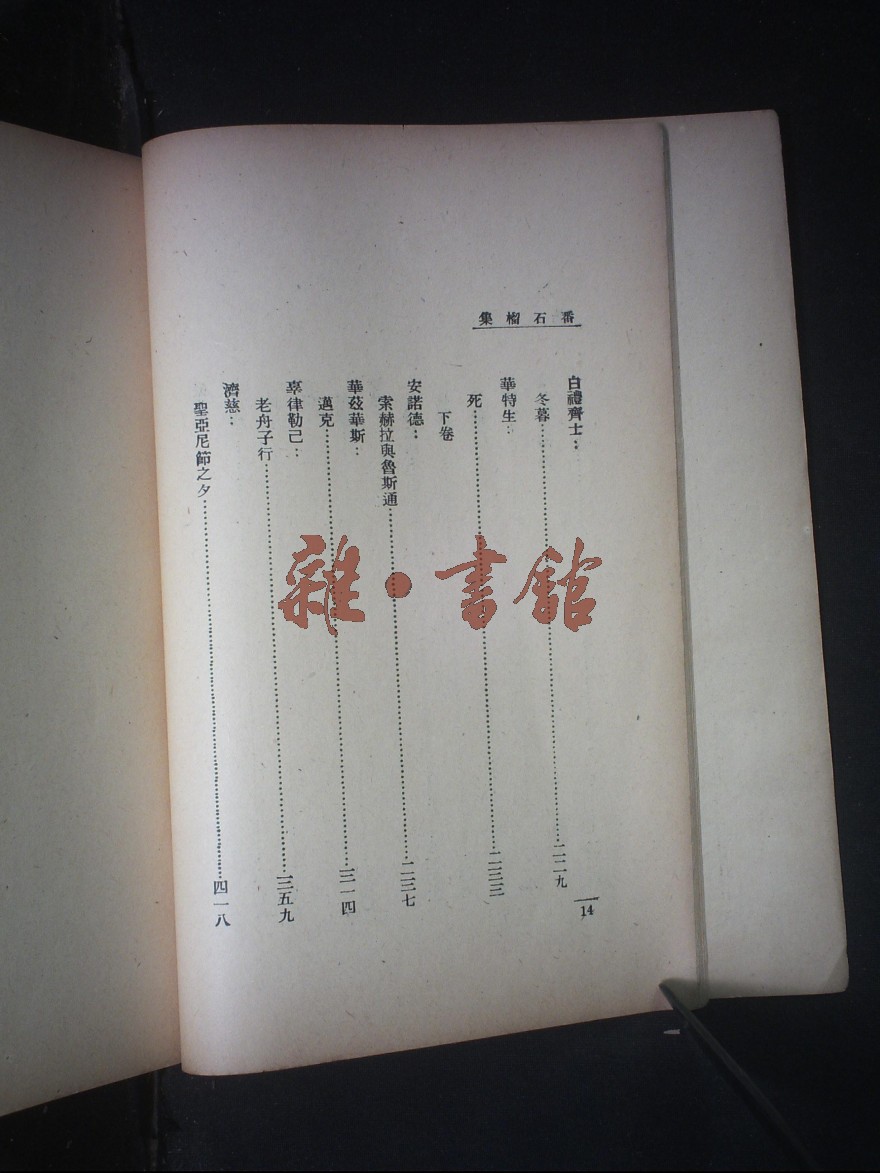 番石榴集
白禮齊士：
冬暮……二二九
華特生：
死……二三三
下卷
安諾德：
索赫拉與魯斯通……二三七
華茲華斯：
邁克……三一四
辜律勒己：
老舟子行……三五九
濟慈：
聖亞尼節之夕……四一八
14
雜·書館